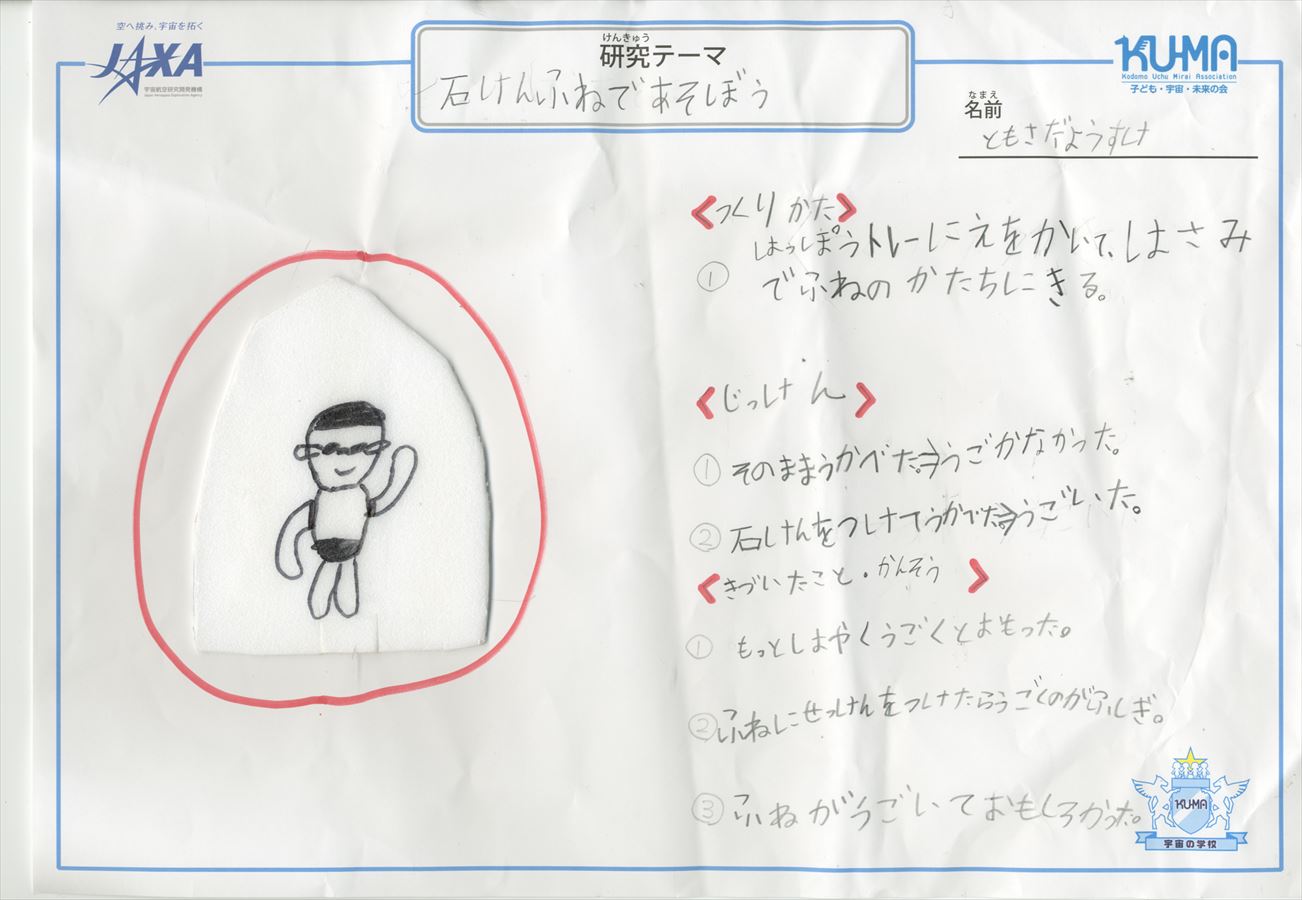 空へ挑み、宇宙を拓く
JAXA
宇宙航空研究開発機構
Japan Aerospace Exploration Agency
けんきゅう
研究テーマ
石けんふねであそぼう
KU-MA
Kodomo Uchu Mirai Association
子ども・宇宙・未来の会
なまえ
名前
ともさだようすけ
<つくりかた>
① はっぽうトレーにえをかいて、はさみ
でふねのかたちにきる。
<じっけん>
① そのままうかべた。⇒うごかなかった。
② 石けんをつけてうかべた。⇒うごいた。
<きづいたこと・かんそう>
① もっとはやくうごくとおもった。
② ふねにせっけんをつけたらうごくのがふしぎ。
③ ふねがうごいておもしろかった。
KU-MA
宇宙の学校